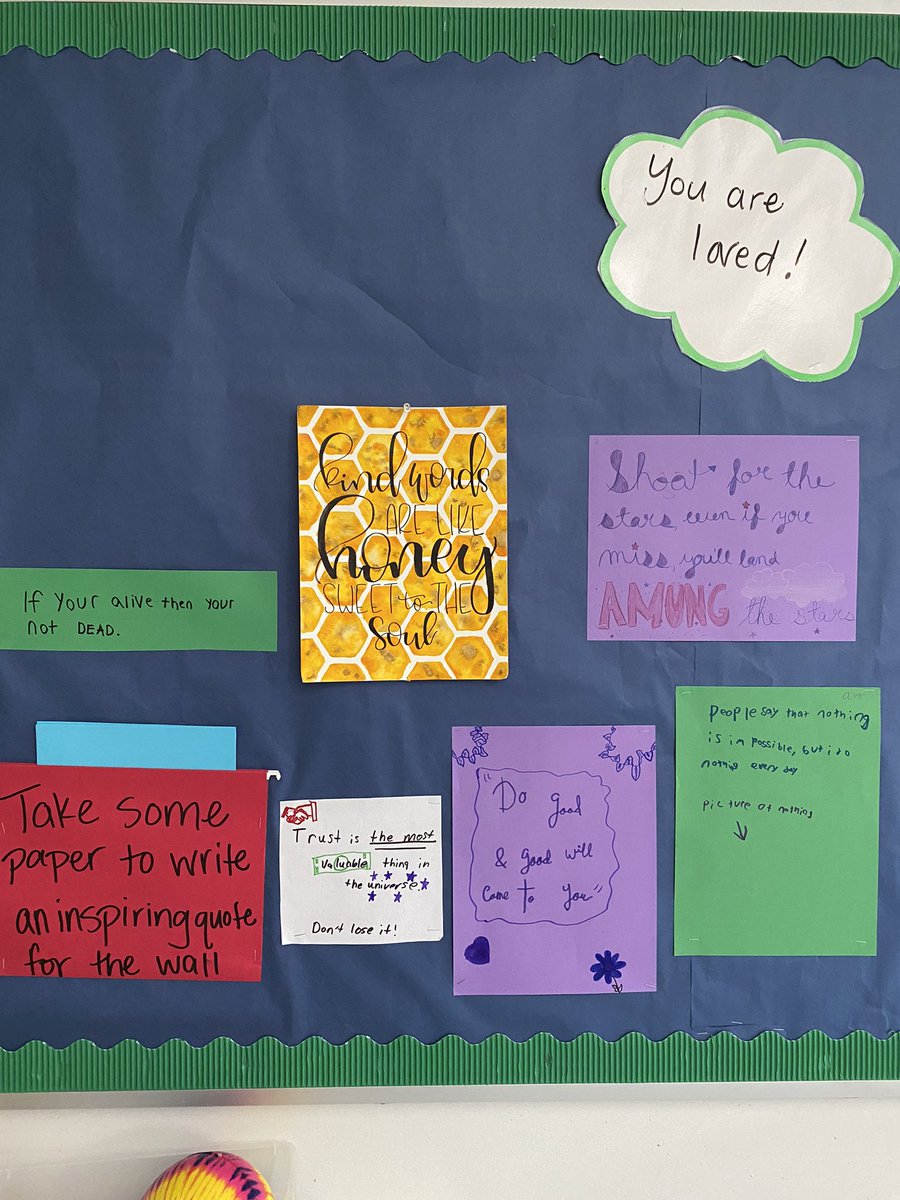 You are
loved!
kind words
ARE LIKE
honey
SWEET to THE
soul
Shoot for the
stars, even if you
miss, you'll land
AMUNG the stars
If your alive then your
not DEAD.
Take some
paper to write
an inspiring quote
for the wall
Trust is the most
valuable thing in
the universe.
Don't lose it!
"Do good
& Good will
come to you"
people say that nothing
is impossible, but i do
nothing every day
picture of nothing